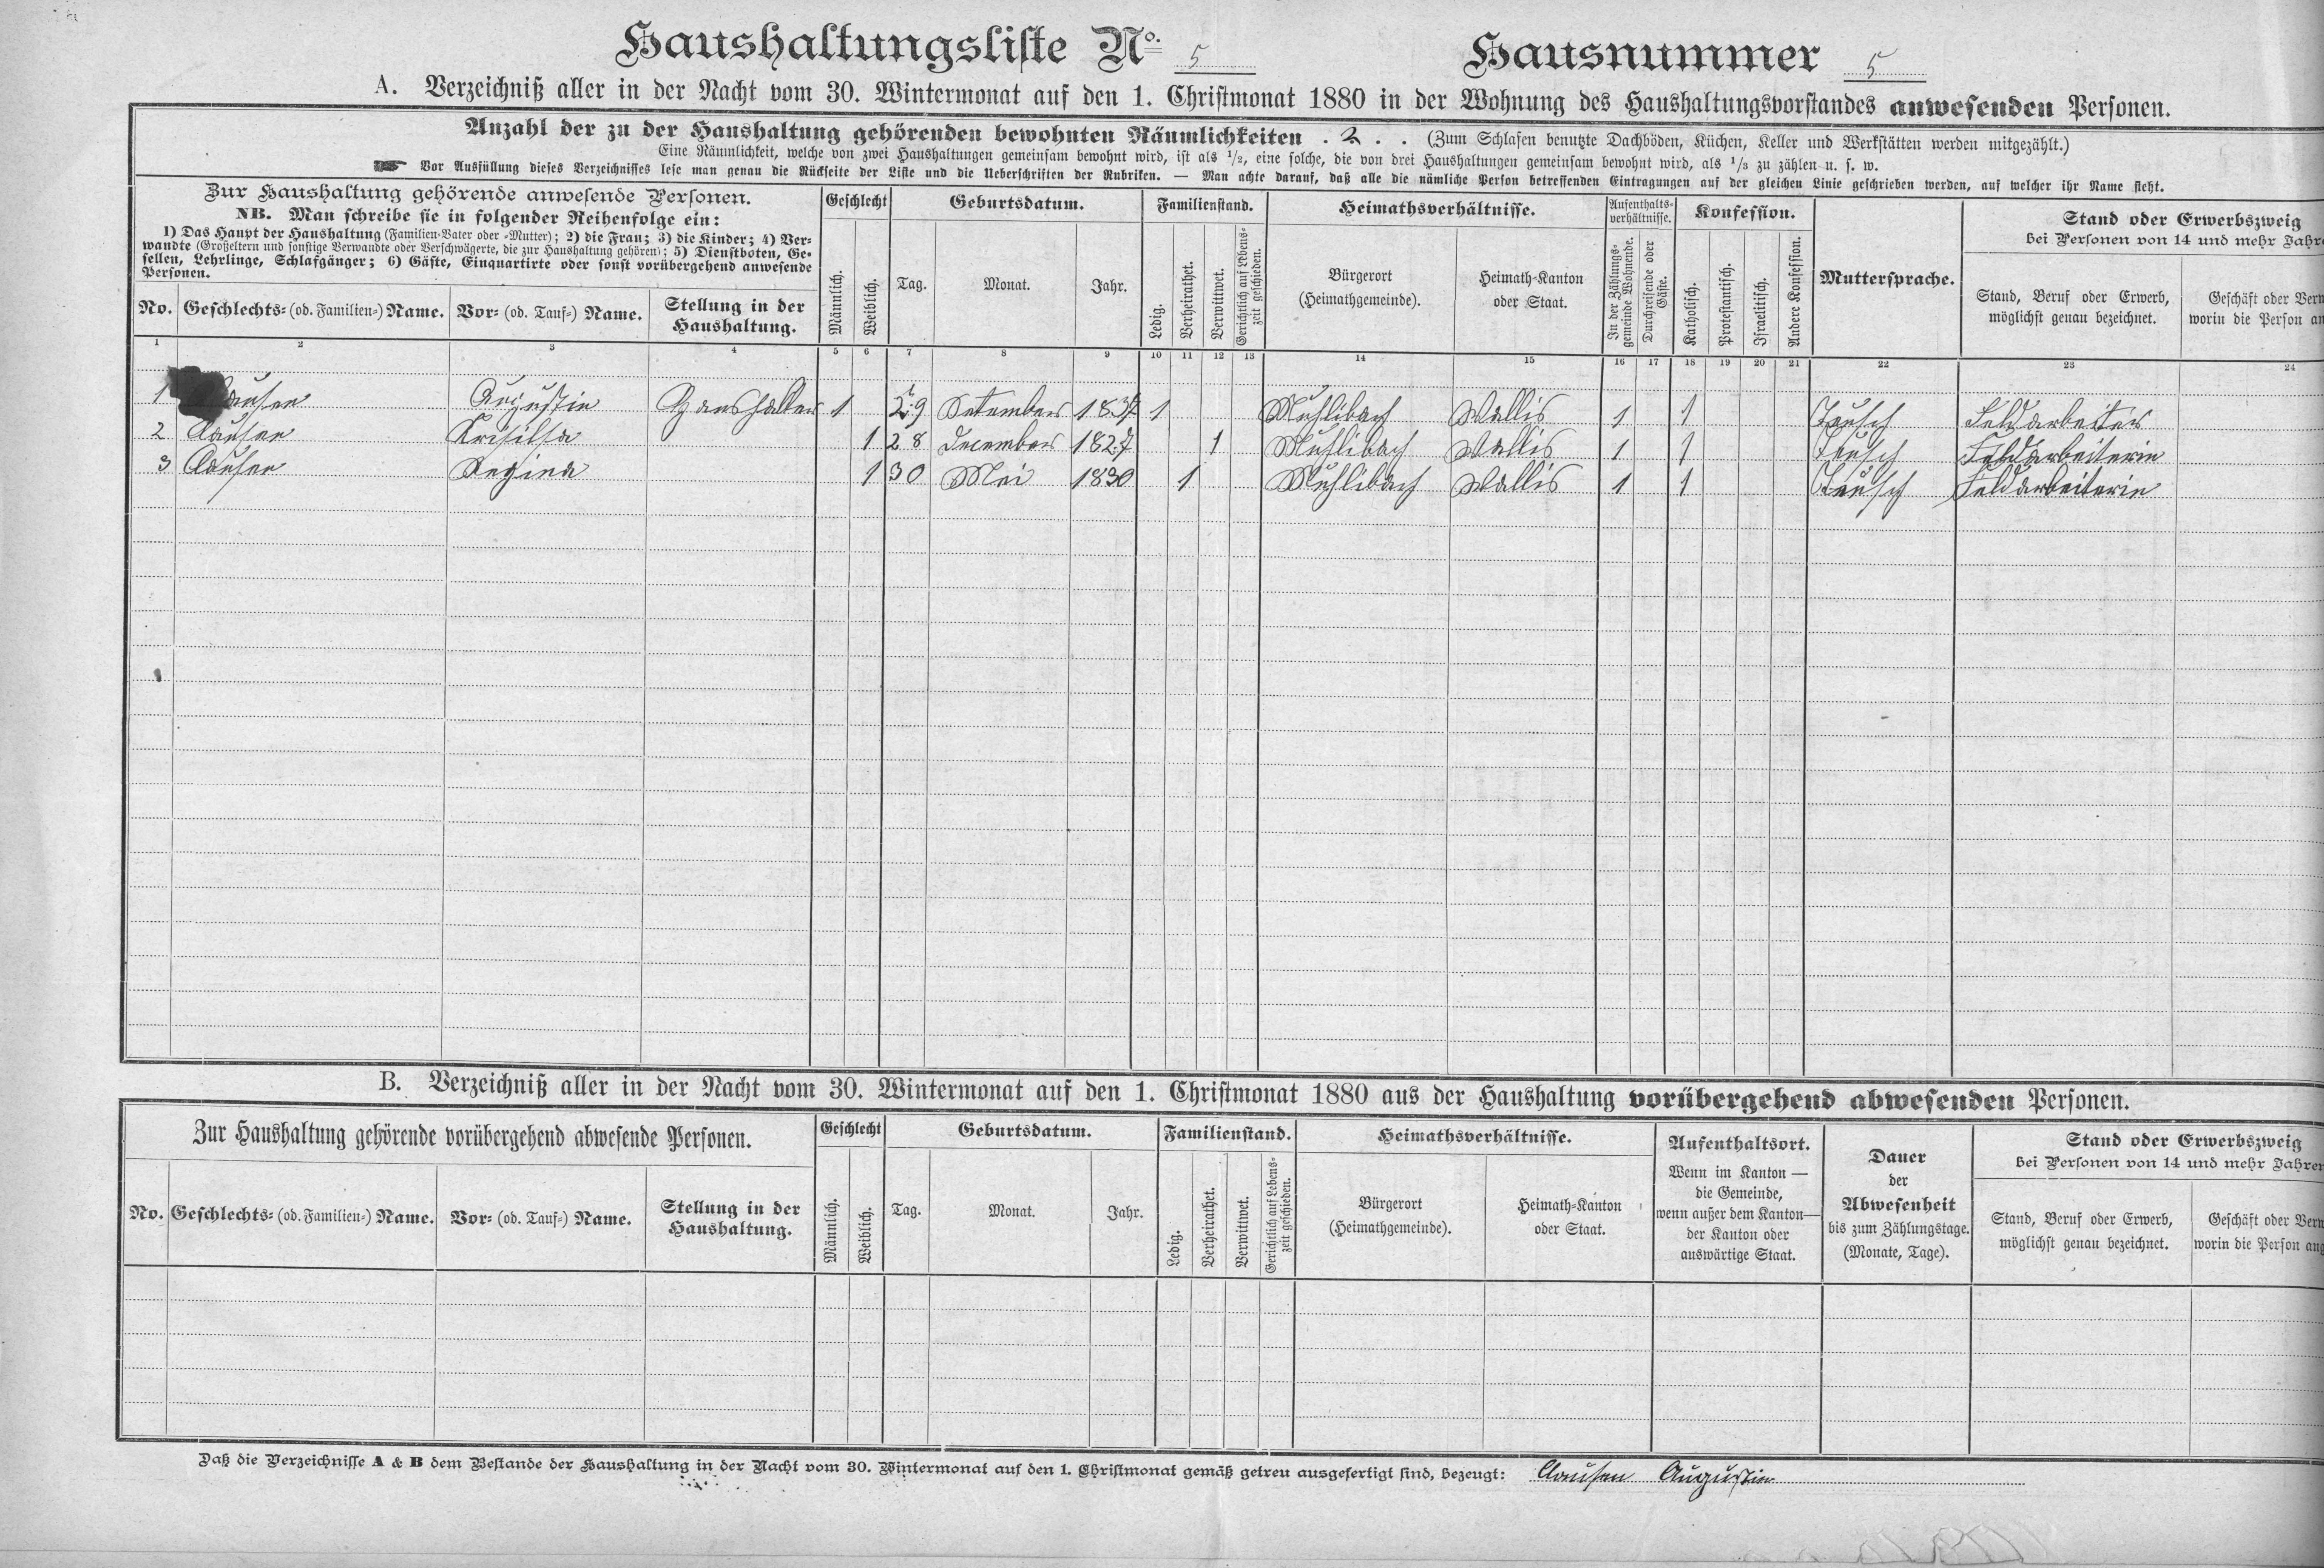 Haushaltungsliste No. 5 Hausnummer 5
A. Verzeichniß aller in der Nacht vom 30. Wintermonat auf den 1. Christmonat 1880 in der Wohnung des Haushaltungsvorstandes anwesenden Personen.
Anzahl der zu der Haushaltung gehörenden bewohnten Räumlichkeiten . 2 . . (Zum Schlafen benutzte Dachböden, Küchen, Keller und Werkstätten werden mitgezählt.)
Eine Räumlichkeit, welche von zwei Haushaltungen gemeinsam bewohnt wird, ist als 1/2, eine solche, die von drei Haushaltungen gemeinsam bewohnt wird, als 1/3 zu zählen u. s. w.
Vor Ausfüllung dieses Verzeichnisses lese man genau die Rückseite der Liste und die Ueberschriften der Rubriken. — Man achte darauf, daß alle die nämliche Person betreffenden Eintragungen auf der gleichen Linie geschrieben werden, auf welcher ihr Name steht.
Zur Haushaltung gehörende anwesende Personen.
NB. Man schreibe sie in folgender Reihenfolge ein:
1) Das Haupt der Haushaltung (Familien-Vater oder -Mutter); 2) die Frau; 3) die Kinder; 4) Ver-
wandte (Großeltern und sonstige Verwandte oder Verschwägerte, die zur Haushaltung gehören); 5) Dienstboten, Ge-
sellen, Lehrlinge, Schlafgänger; 6) Gäste, Einquartirte oder sonst vorübergehend anwesende
Personen.
No. Geschlechts- (od. Familien-) Name. Vor- (od. Tauf-) Name. Stellung in der
Haushaltung.
Geschlecht
Männlich.
Weiblich.
Geburtsdatum.
Tag. Monat. Jahr.
Familienstand.
Ledig.
Verheirathet.
Verwittwet.
Gerichtlich auf Lebens-
zeit geschieden.
Heimathsverhältnisse.
Bürgerort
(Heimathgemeinde).
Heimath-Kanton
oder Staat.
Aufenthalts-
verhältnisse.
In der Zählungs-
gemeinde Wohnende.
Durchreisende oder
Gäste.
Konfession.
Katholisch.
Protestantisch.
Israelitisch.
Andere Konfession.
Muttersprache.
Stand oder Erwerbszweig
bei Personen von 14 und mehr Jahre
Stand, Beruf oder Erwerb,
möglichst genau bezeichnet.
Geschäft oder Verw
worin die Person an
1 2 3 4 5 6 7 8 9 10 11 12 13 14 15 16 17 18 19 20 21 22 23 24
1 Clausen Augustin Haushalter 1 29 Setember 1837 1 Muhlibach Wallis 1 1 Teusch Feldarbeiter
2 Clausen 1 28 December 1827 1 Muhlibach Wallis 1 1 Teusch Feldarbeiterin
3 Clausen Regina 1 30 Mei 1830 1 Muhlibach Wallis 1 1 Teusch Feldarbeiterin
B. Verzeichniß aller in der Nacht vom 30. Wintermonat auf den 1. Christmonat 1880 aus der Haushaltung vorübergehend abwesenden Personen.
Zur Haushaltung gehörende vorübergehend abwesende Personen.
No. Geschlechts- (od. Familien-) Name. Vor- (od. Tauf-) Name. Stellung in der
Haushaltung.
Geschlecht
Männlich.
Weiblich.
Geburtsdatum.
Tag. Monat. Jahr.
Familienstand.
Ledig.
Verheirathet.
Verwittwet.
Gerichtlich auf Lebens-
zeit geschieden.
Heimathsverhältnisse.
Bürgerort
(Heimathgemeinde).
Heimath-Kanton
oder Staat.
Aufenthaltsort.
Wenn im Kanton —
die Gemeinde,
wenn außer dem Kanton—
der Kanton oder
auswärtige Staat.
Dauer
der
Abwesenheit
bis zum Zählungstage.
(Monate, Tage).
Stand oder Erwerbszweig
bei Personen von 14 und mehr Jahren
Stand, Beruf oder Erwerb,
möglichst genau bezeichnet.
Geschäft oder Verw
worin die Person ang
Daß die Verzeichnisse A & B dem Bestande der Haushaltung in der Nacht vom 30. Wintermonat auf den 1. Christmonat gemäß getreu ausgefertigt sind, bezeugt: Clausen Augustin